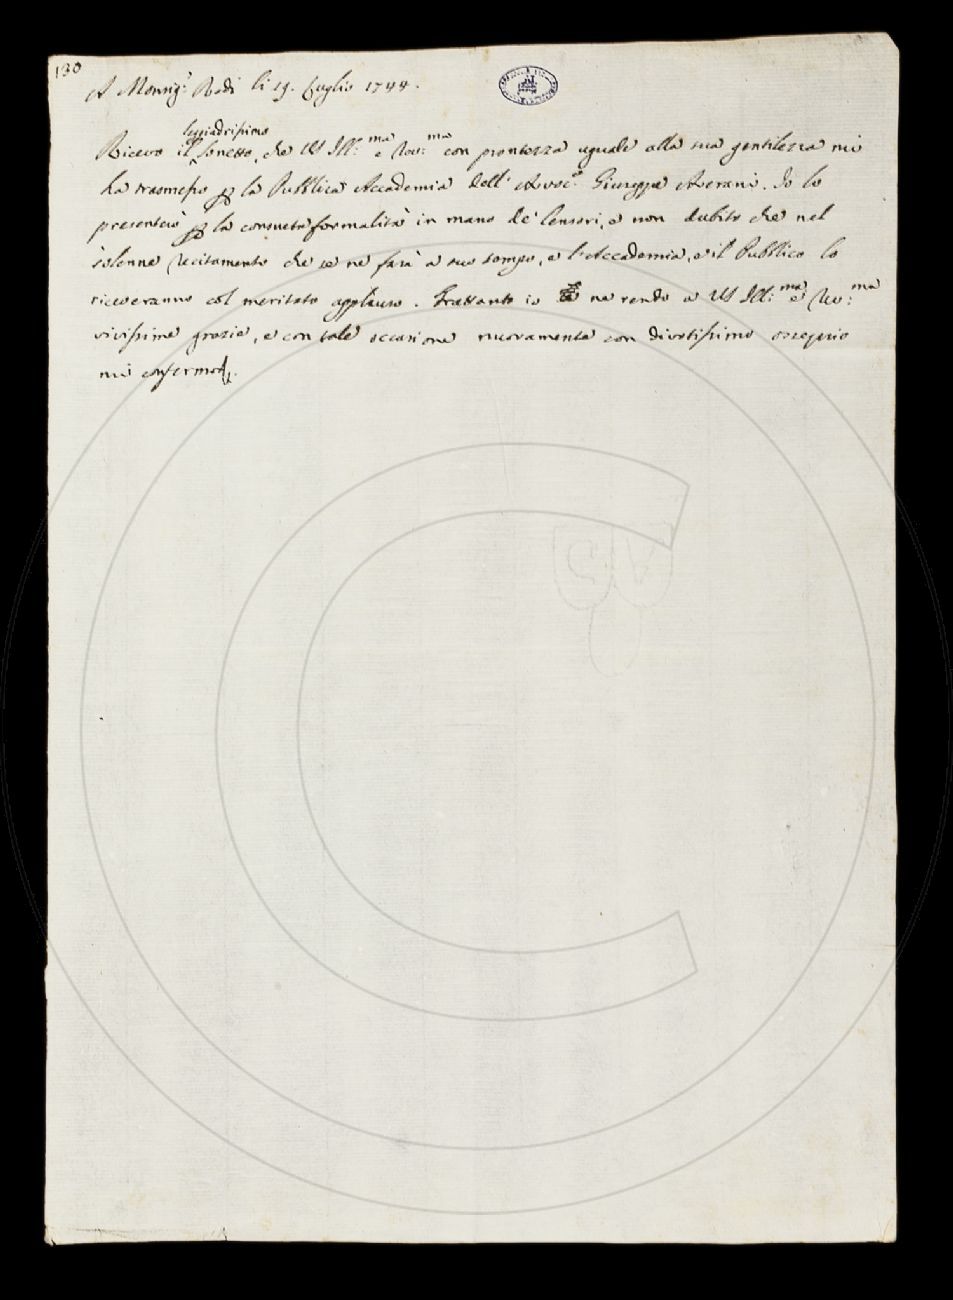 130
A Monsig.r Redi li 19. Luglio 1744.
leggiadrissimo
Ricevo il sonetto, che VS Ill:ma e Rev:ma con prontezza uguale alla sua gentilezza mi
ha trasmesso p la Pubblica Accademia dell' Avvoc.o Giuseppe Averani. Io lo
presenterò p la consueta formalità in mano de' Censori, e non dubito che nel
solenne recitamento che se ne farà a suo tempo, e l'Accademia, e il Pubblico lo
riceveranno col meritato applauso. Frattanto io ne rendo a VS Ill:ma e Rev:ma
vivissime grazie, e con tale occasione nuovamente con divotissimo ossequio
mi confermo